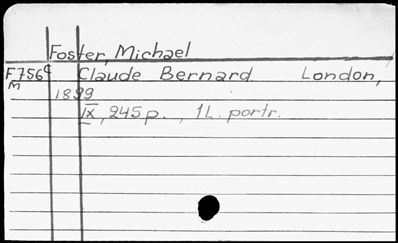 Foster, Michael
F756c Claude Bernard London,
M
1899
IX, 245p., 1L. portr.